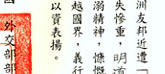 洲友邦近遭
失慘重，明道
溺精神，慷慨
越國界，義行
以資表揚。
外交部部